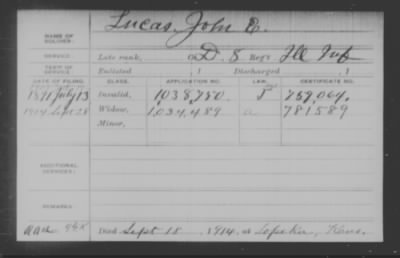 Lucas, John E.
NAME OF SOLDIER:
SERVICE: Late rank, Co. D, 8 Reg't Ill Inf
TERM OF SERVICE: Enlisted , 1 Discharged , 1
DATE OF FILING. CLASS. APPLICATION NO. LAW. CERTIFICATE NO.
1891 July 13 Invalid, 1,038,750 759,064.
1914 Sept 28 Widow, 1,034,489 781589
Minor,
ADDITIONAL SERVICES:
REMARKS:
Died Sept 18, 1914, at Topeka, Kans.